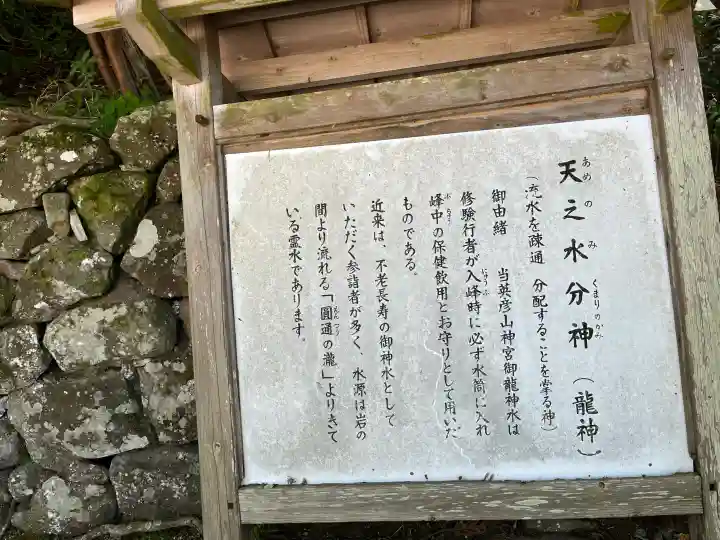 天之水分神(龍神)
あめのみくまりのかみ
(流水を疎通 分配することを掌る神)
御由緒 当英彦山神宮御龍神水は
修験行者が入峰時に必ず水筒に入れ
にゅうぶ
峰中の保健飲用とお守りとして用いた
ぶちゅう
ものである。
近来は、不老長寿の御神水として
いただく参詣者が多く、水源は岩の
間より流れる「圓通の瀧」よりきて
えんつう
いる霊水であります。